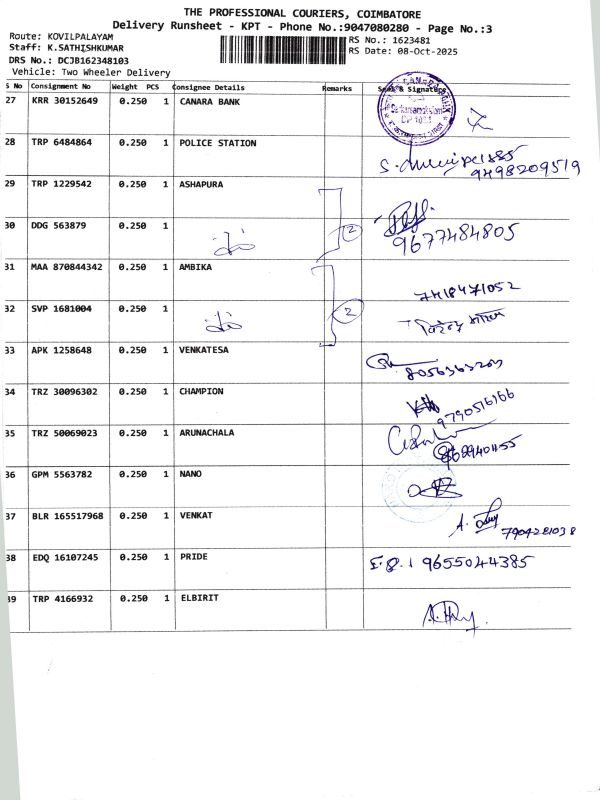 THE PROFESSIONAL COURIERS, COIMBATORE
Delivery Runsheet - KPT - Phone No.:9047080280 - Page No.:3
Route: KOVILPALAYAM
RS No.: 1623481
Staff: K.SATHISHKUMAR
RS Date: 08-Oct-2025
DRS No.: DCJB162348103
Vehicle: Two Wheeler Delivery
S No Consignment No Weight PCS Consignee Details Remarks Seal & Signature
27 KRR 30152649 0.250 1 CANARA BANK
28 TRP 6484864 0.250 1 POLICE STATION
9498209519
29 TRP 1229542 0.250 1 ASHAPURA
30 DDG 563879 0.250 1
2
9677484805
31 MAA 870844342 0.250 1 AMBIKA
7418471052
32 SVP 1681004 0.250 1
2
33 APK 1258648 0.250 1 VENKATESA
8056363203
34 TRZ 30096302 0.250 1 CHAMPION
9790516166
35 TRZ 50069023 0.250 1 ARUNACHALA
36 GPM 5563782 0.250 1 NANO
37 BLR 165517968 0.250 1 VENKAT
7904281038
38 EDQ 16107245 0.250 1 PRIDE
9655044385
39 TRP 4166932 0.250 1 ELBIRIT